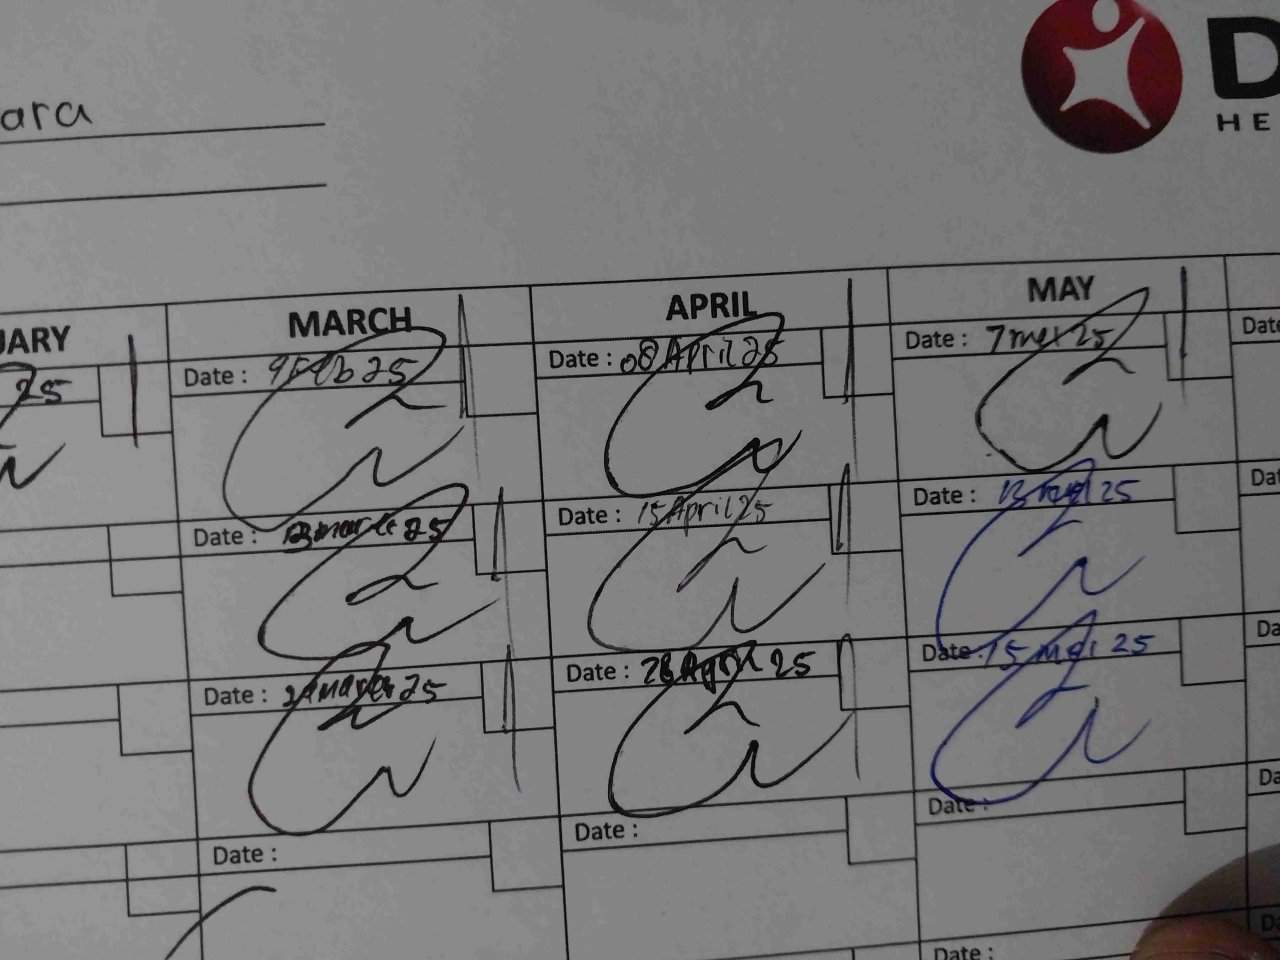 ara
D
HE
UARY
MARCH
APRIL
MAY
25
Date : 9 Feb 25
Date : 08 April 25
Date : 7 mei 25
Date
Date : 25
Date : 15 April 25
Date : 13 25
Dat
Date : 25
Date : 28 April 25
Date : 15 Mei 25
Da
Date :
Date :
Date :
Da
Date :
D